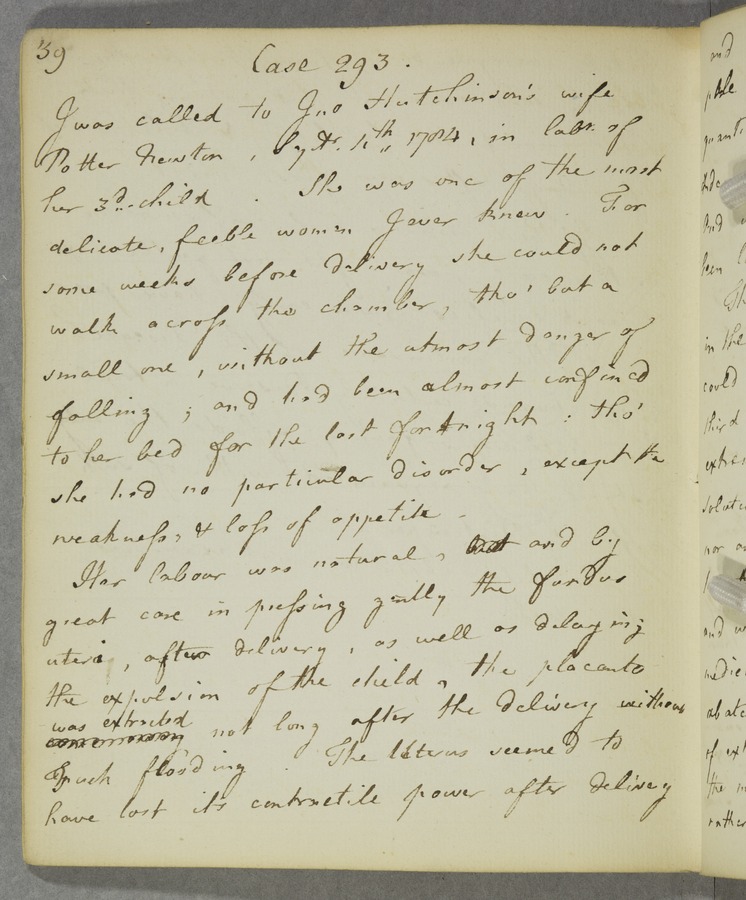 39
Case 293.
I was called to Jno Hutchinson's wife
Potter Newton, Sepr. 4th, 1784, in labr. of
her 3d. child. She was one of the most
delicate, feeble women I ever knew. For
some weeks before delivery she could not
walk across the chamber, tho' but a
small one, without the utmost danger of
falling; and had been almost confined
to her bed for the last fortnight: tho'
she had no particular disorder, except the
weakness, & loss of appetite.
Her labour was natural, and by
great care in pressing gently the fundus
uteri, after delivery, as well as delaying
the expulsion of the child, the placenta
was extracted
not long after the delivery without
much flooding. The Uterus seemed to
have lost its contractile power after delivery
and
in the
could
third
nor
and
of
the
rather